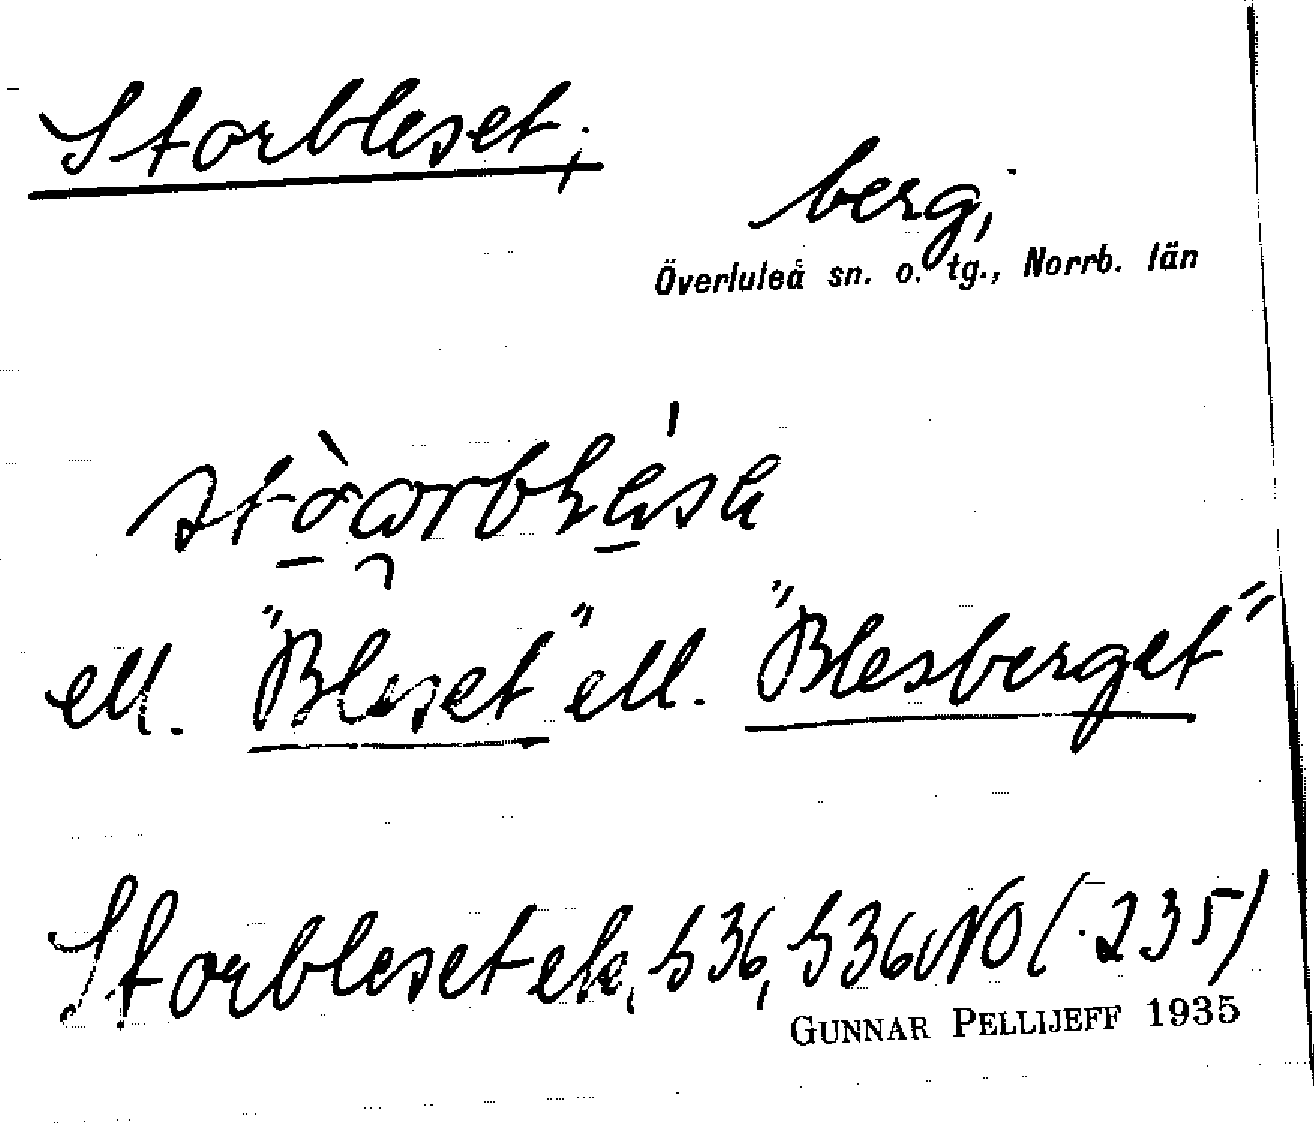 Storbleset;
berg,
Överluleå sn. o. tg., Norrb. län
ell. "Bleset" ell. "Blesberget"
Storbleset ek, S36, S36vNO (·235)
GUNNAR PELLIJEFF 1935